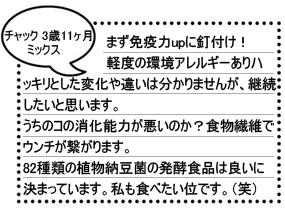 チャック 3歳11ヶ月
ミックス
まず免疫力upに釘付け！
軽度の環境アレルギーありハ
ッキリとした変化や違いは分かりませんが、継続
したいと思います。
うちのコの消化能力が悪いのか？食物繊維で
ウンチが繋がります。
82種類の植物納豆菌の発酵食品は良いに
決まっています。私も食べたい位です。（笑）